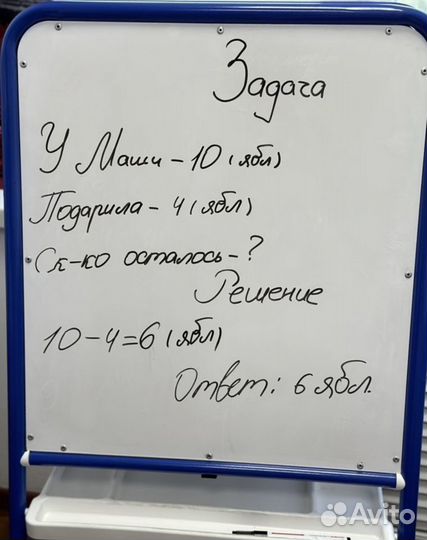 Задача
У Маши - 10 (ябл)
Подарила - 4 (ябл)
Ск-ко осталось - ?
Решение
10 - 4 = 6 (ябл)
Ответ: 6 ябл.
Avito